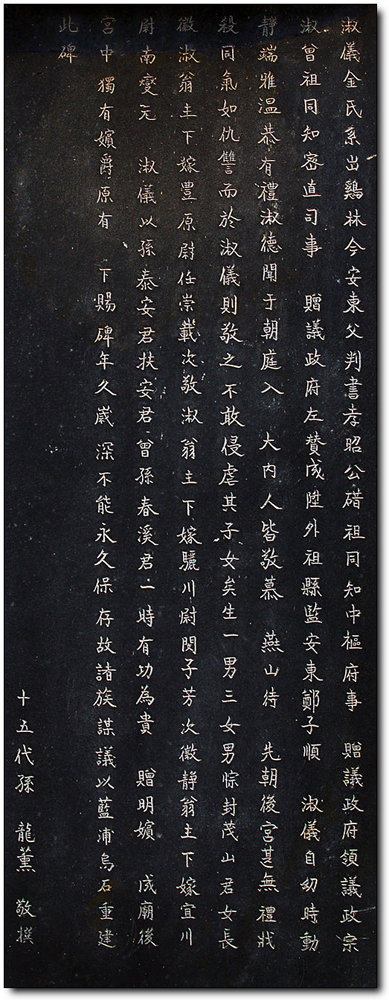 淑儀金氏系出鷄林今安東父判書孝昭公碏祖同知中樞府事 贈議政府領議政宗
淑曾祖同知密直司事 贈議政府左贊成陞外祖縣監安東鄭子順 淑儀自幼時動
靜端雅温恭有禮淑德聞于朝庭入 大内人皆敬慕 燕山待 先朝後宮甚無禮戕
殺同氣如仇讐而於淑儀則敬之不敢侵虐其子女矣生一男三女男悰封茂山君女長
徽淑翁主下嫁豊原尉任崇載次敬淑翁主下嫁驪川尉閔子芳次徽静翁主下嫁宜川
尉南燮元 淑儀以孫泰安君扶安君曾孫春溪君一時有功為貴 贈明嬪 成廟後
宮中獨有嬪爵原有 下賜碑年久歲深不能永久保存故諸族謀議以藍浦烏石重建
此碑
十五代孫 龍薰 敬撰